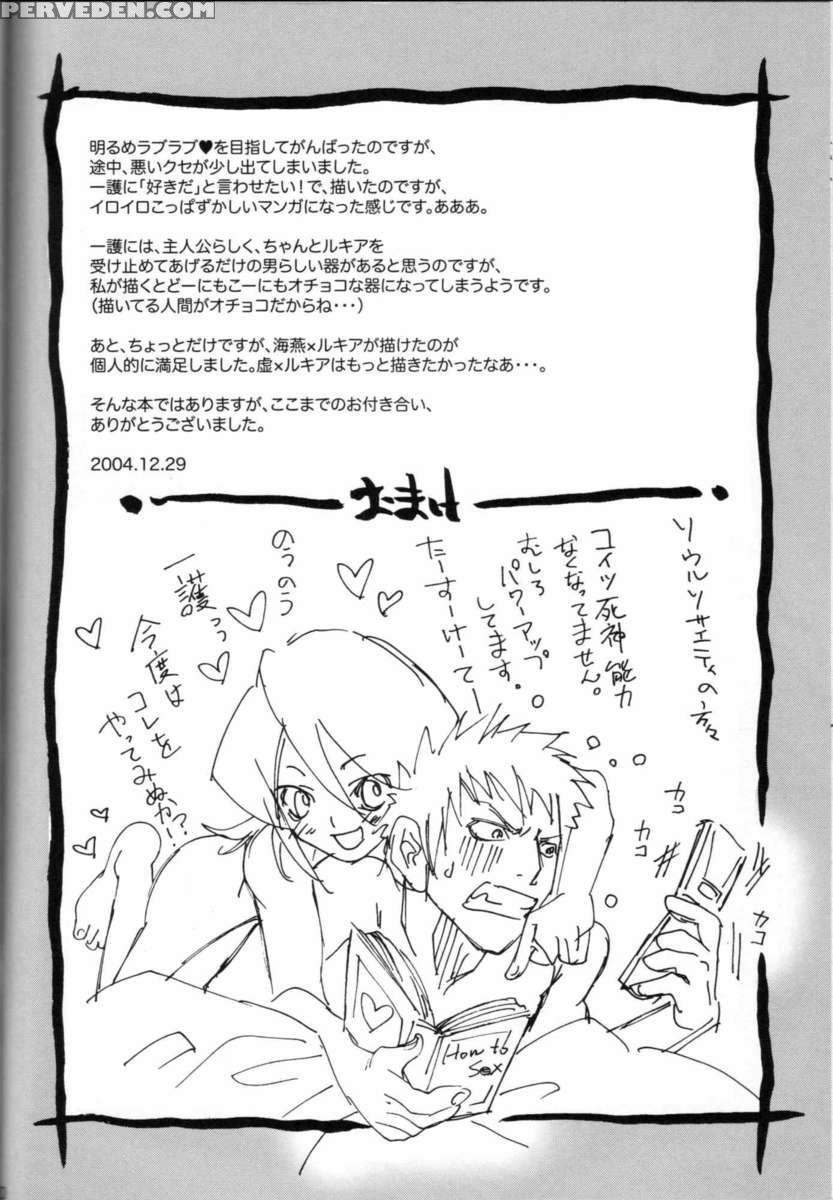 PERVEDEN.COM
明るめラブラブ♥を目指してがんばったのですが、
途中、悪いクセが少し出てしまいました。
一護に「好きだ」と言わせたい！で、描いたのですが、
イロイロこっぱずかしいマンガになった感じです。あああ。
一護には、主人公らしく、ちゃんとルキアを
受け止めてあげるだけの男らしい器があると思うのですが、
私が描くとどーにもこーにもオチョコな器になってしまうようです。
（描いてる人間がオチョコだからね・・・）
あと、ちょっとだけですが、海燕×ルキアが描けたのが
個人的に満足しました。虚×ルキアはもっと描きたかったなあ・・・。
そんな本ではありますが、ここまでのお付き合い、
ありがとうございました。
2004.12.29
おまけ
ソウルソサエティの方々
コイツ死神能力
なくなってません。
むしろ
パワーアップ
してます。
たーすーけーてー
のうのう
一護っっ
今度は
コレを
やってみぬか!?
カコ
カコ
カコ
カコ
How to
Sex